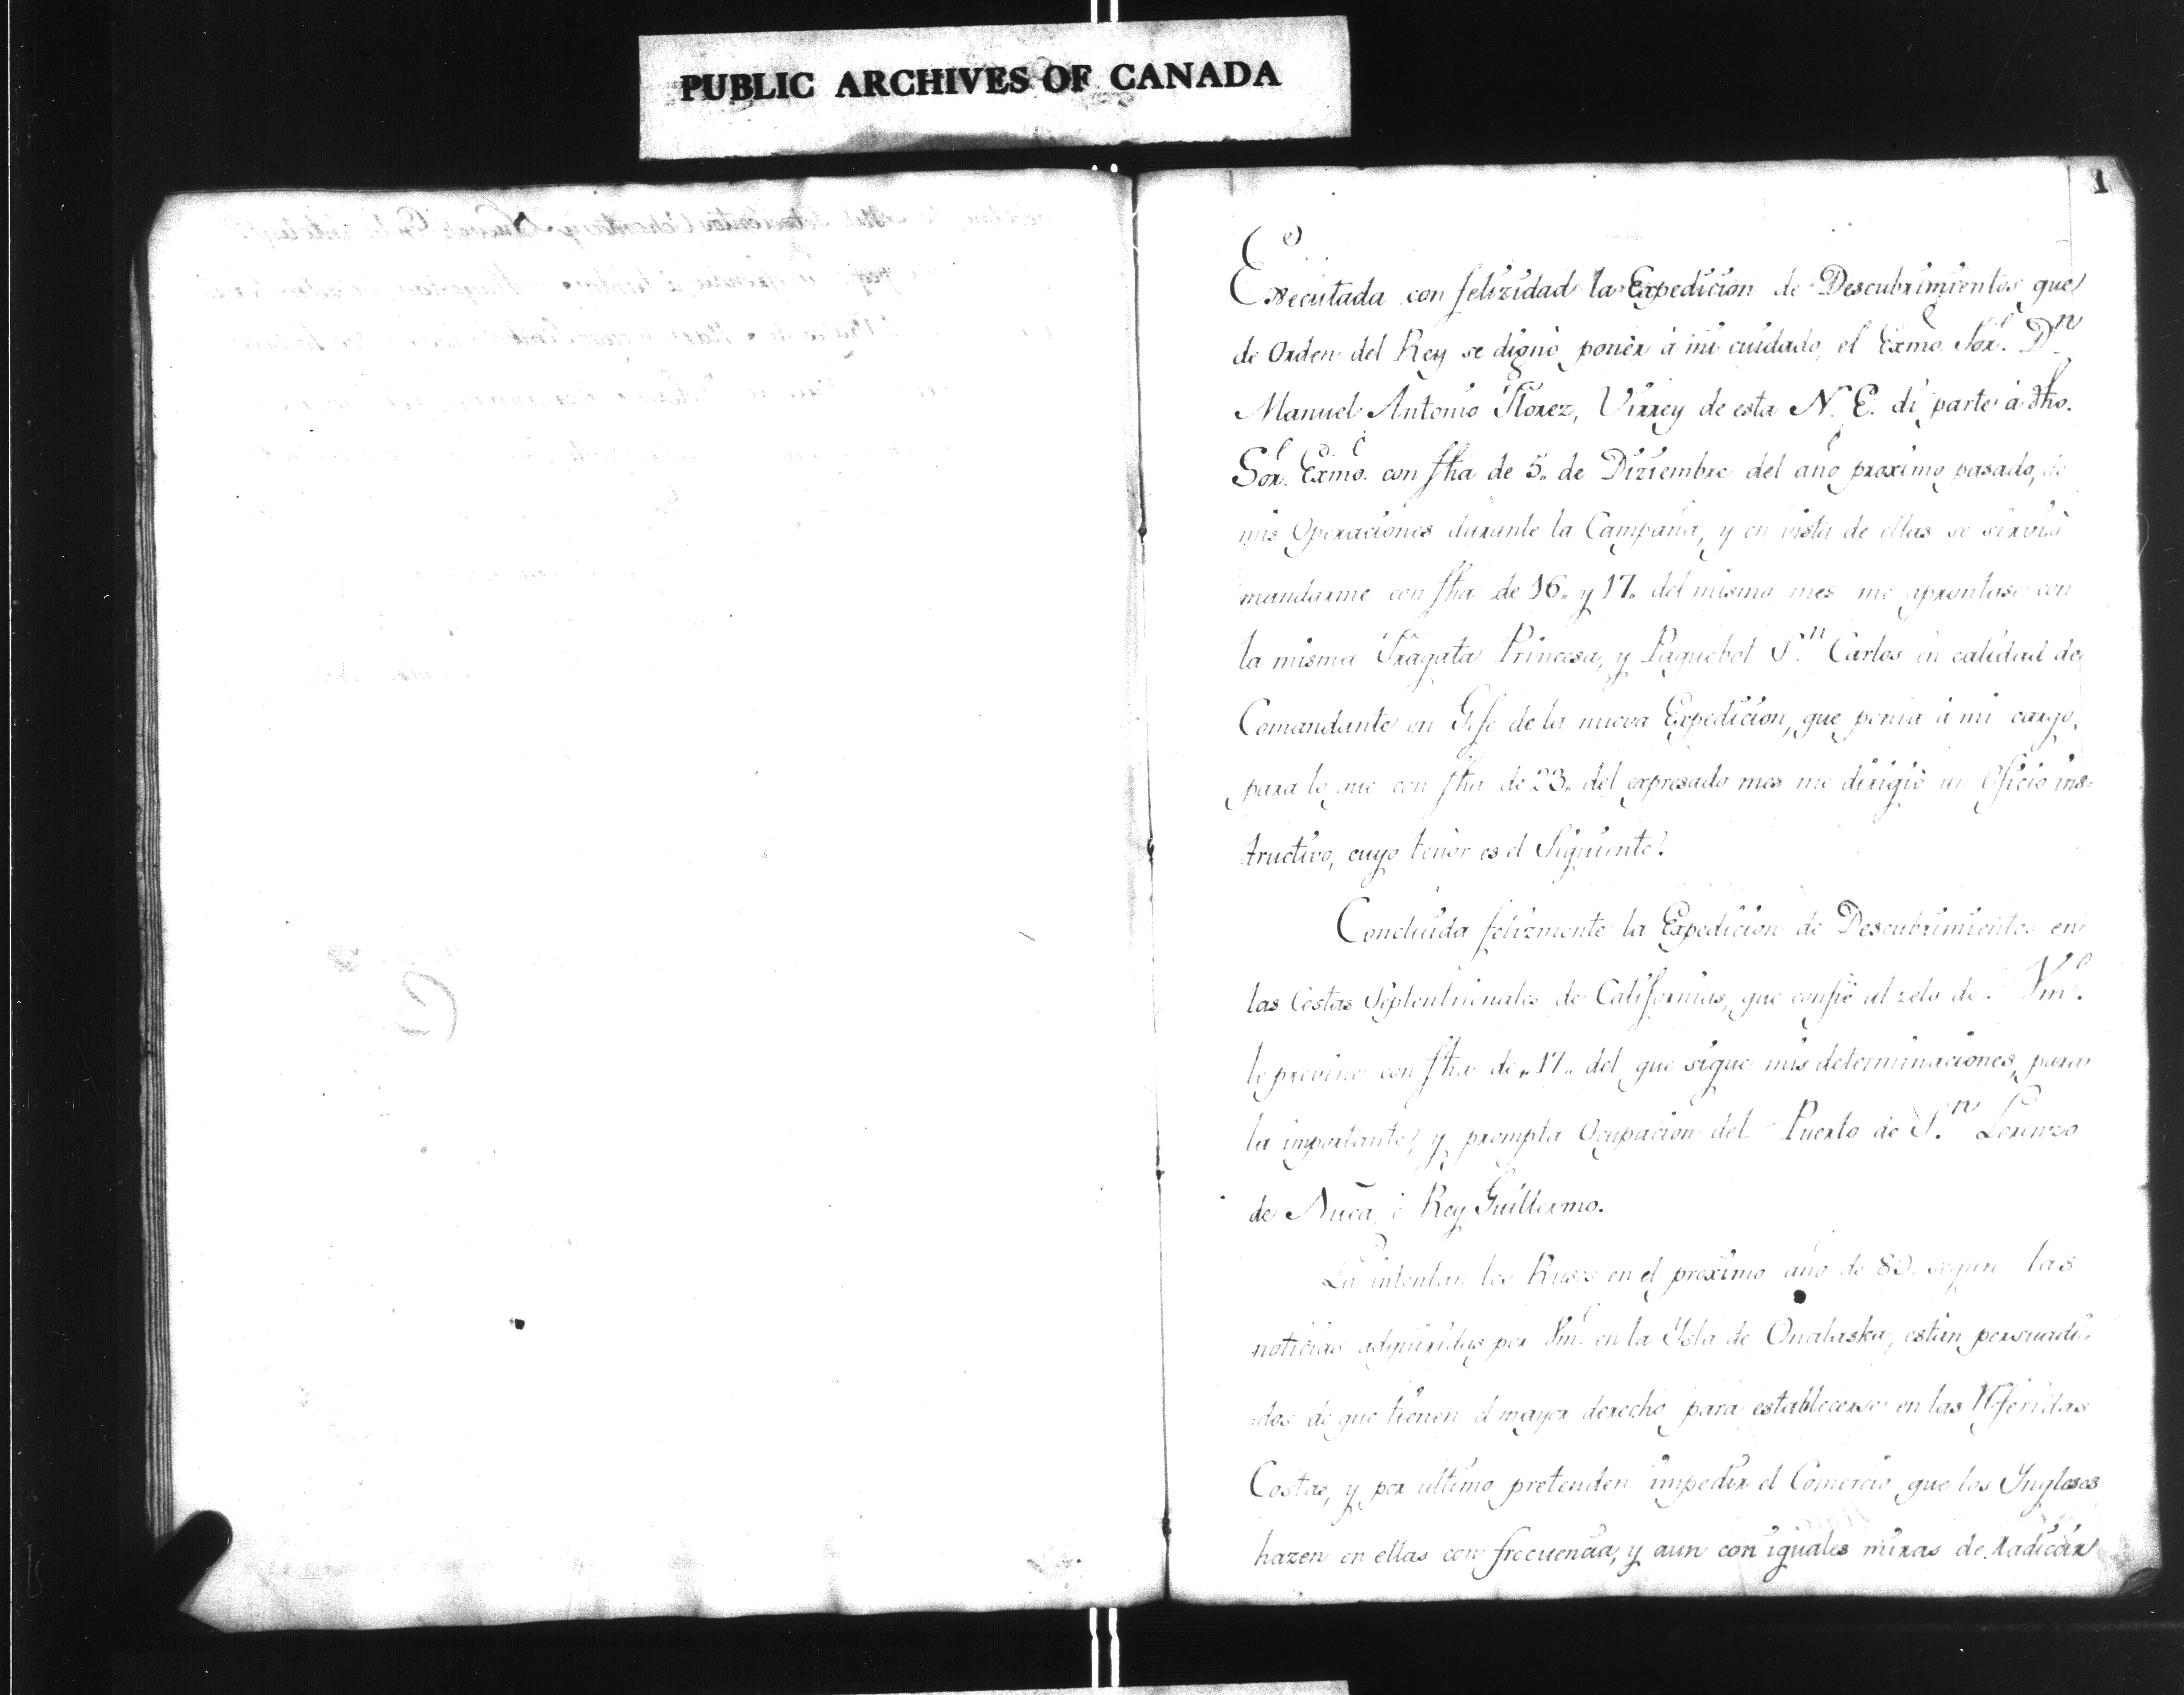 PUBLIC ARCHIVES OF CANADA
1
Execcutada con felizidad la Expedicion de Descubrimientos que
de Orden del Rey se dignò ponèr à mi cuidado, el Exmo. Sor. Dn.
Manuel Antonio Florez, Virrey de esta N. E. di parte à dho.
Sor. Exmo. con fha de 5,, de Diziembre del año proximo pasado, de
mis Operaciones durante la Campaña, y en vista de ellas se sirviò
mandarme con fha de 16,, y 17,, del mismo mes me aprontase con
la misma Fragata Princesa, y Paquebot Sn. Carlos en calidad de
Comandante en Gefe de la nueva Expedicion, que ponia à mi cargo,
para lo que con fha de 23,, del expresado mes me dirigiò un Oficio ins=
tructivo, cuyo tenòr es el Siguiente.
Concluida felizmente la Expedicion de Descubrimientos en
las Costas Septentrionales de Californias, que confiè al zelo de Vm.
le previne con fha de ,,17,, del que sigue mis determinaciones, para
la importante, y prompta Ocupacion del Puerto de Sn. Lorenzo
de Nuca, ò Rey Guillermo.
La intentan los Rusos en el proximo año de 89. segun las
noticias adquiridas por Vm. en la Ysla de Onalaska, estàn persuadi=
dos de que tienen el mayor derecho para establecerse en las Referidas
Costas, y por ultimo pretenden impedir el Comercio que los Yngleses
hazen en ellas con frecuencia, y aun con iguales miras de radicàr